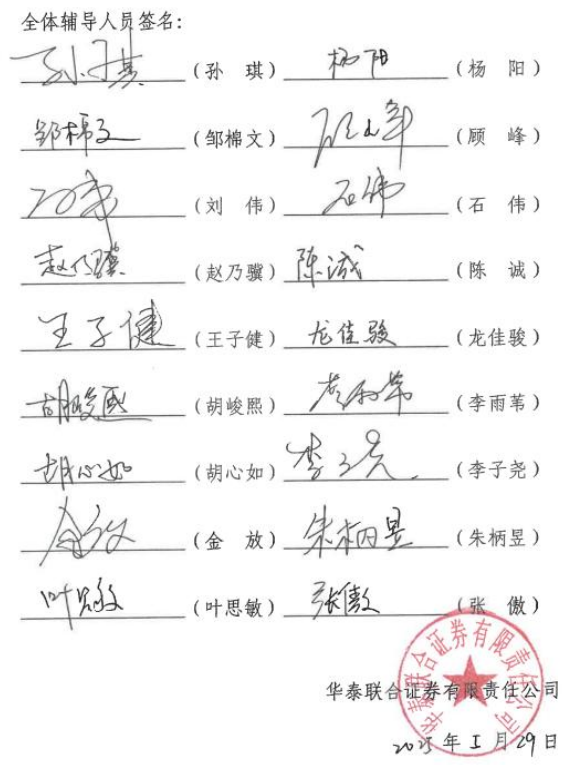 全体辅导人员签名：
孙琪（孙 琪） 杨阳（杨 阳）
邹棉文（邹棉文） 顾峰（顾 峰）
刘伟（刘 伟） 石伟（石 伟）
赵乃骥（赵乃骥） 陈诚（陈 诚）
王子健（王子健） 龙佳骏（龙佳骏）
胡峻熙（胡峻熙） 李雨苇（李雨苇）
胡心如（胡心如） 李子尧（李子尧）
金放（金 放） 朱柄昱（朱柄昱）
叶思敏（叶思敏） 张傲（张 傲）
华泰联合证券有限责任公司
华泰联合证券有限责任公司
2025 年 1 月 29 日